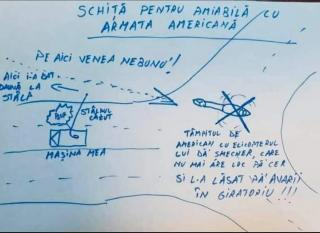 SCHIȚĂ PENTRU AMIABILĂ CU
ARMATA AMERICANĂ
PE AICI VENEA NEBUNU'!
AICI I-A DAT
DAUNĂ LA
STÂLP
BUF
STÂLPUL
CĂZUT
MAȘINA MEA
TÂMPITUL DE
AMERICAN CU ELICOPTERUL
LUI DĂ' SMECHER, CARE
NU MAI ARE LOC PĂ CER
ȘI L-A LĂSAT PĂ' AVARII
ÎN GIRATORIU !!!